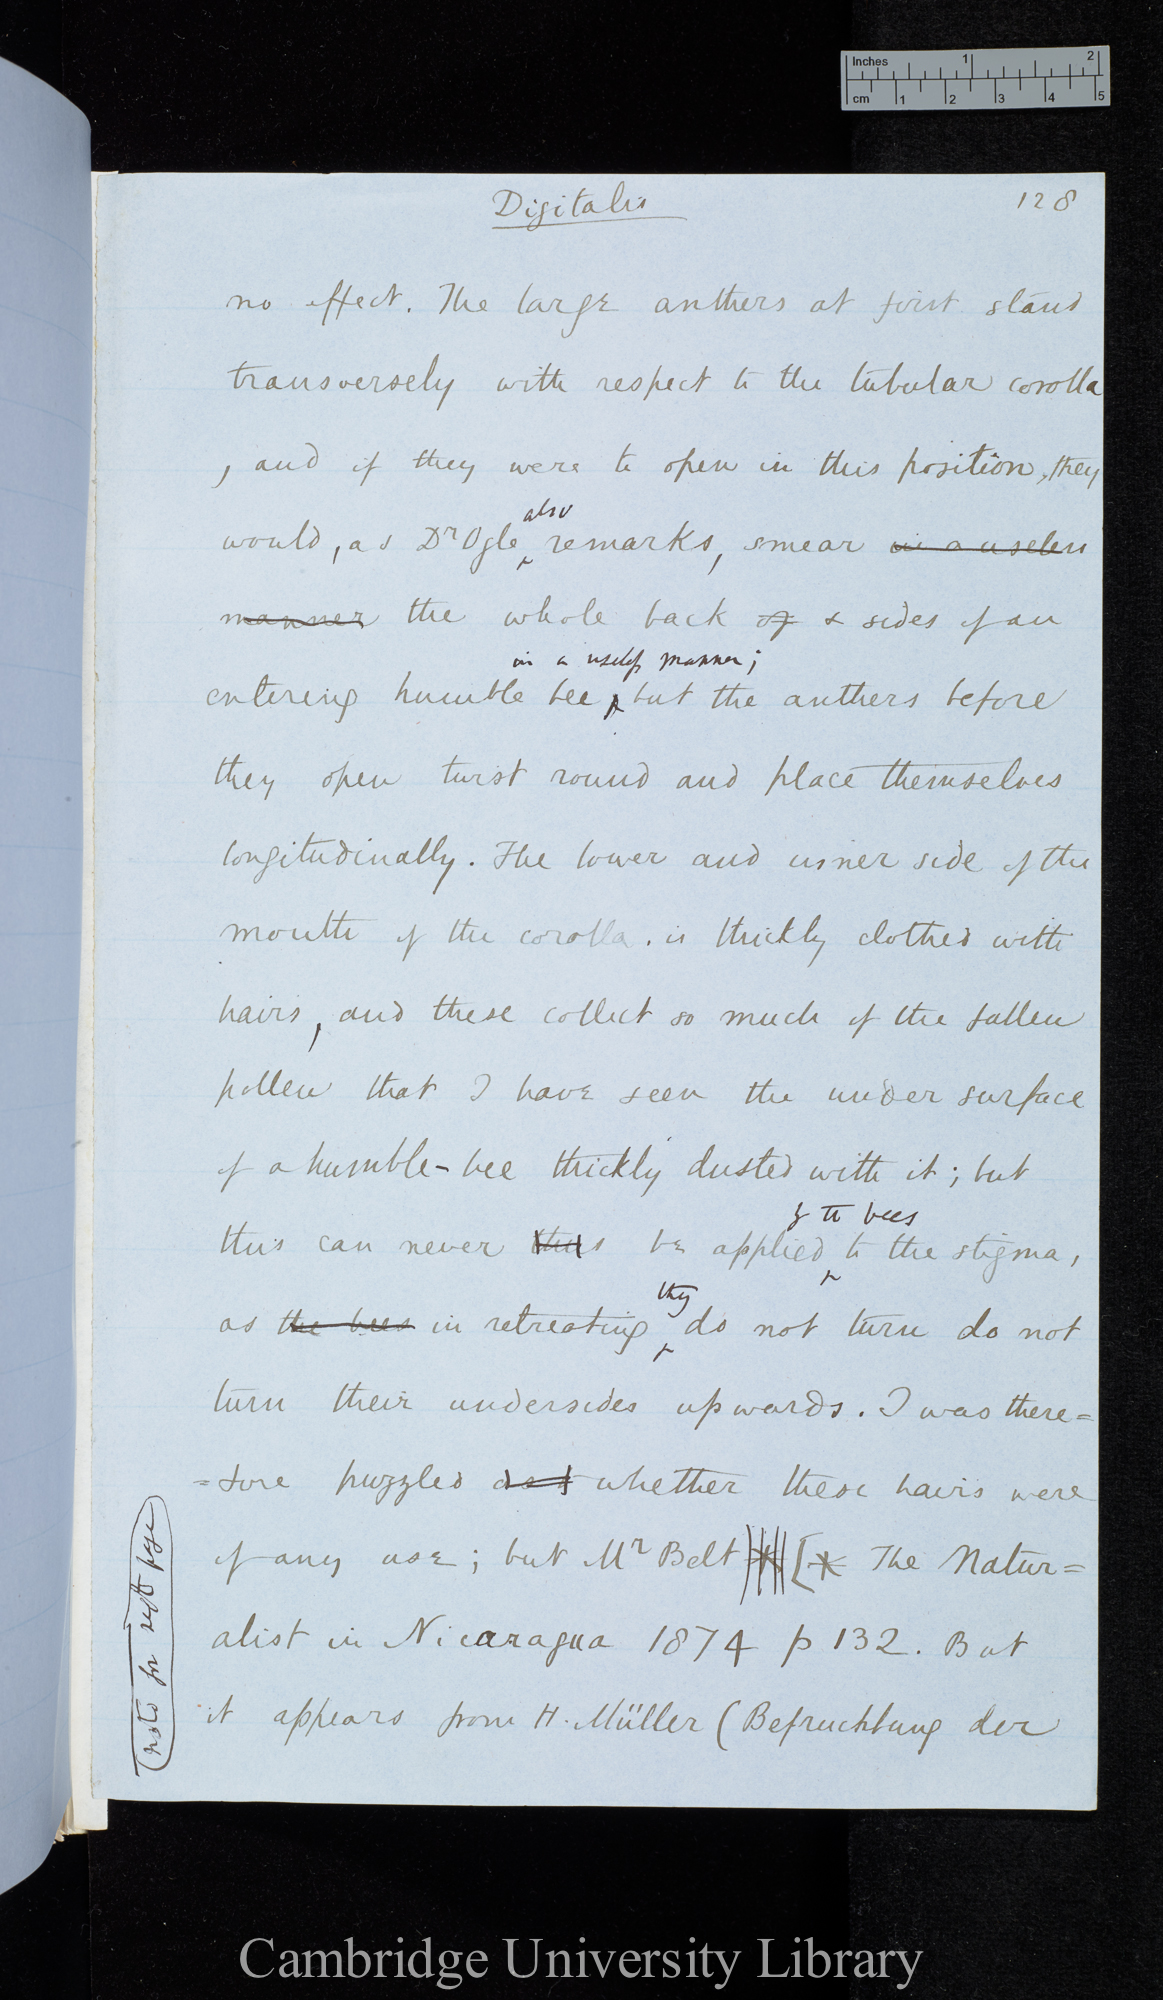 Inches 1 2
cm 1 2 3 4 5
Digitalis
128
no effect. The large anthers at first stand
transversely with respect to the tubular corolla
, and if they were to open in this position, they
also
would, as Dr Ogle remarks, smear in a useless
manner the whole back of & sides of an
in a useless manner;
entering humble bee but the anthers before
they open twist round and place themselves
longitudinally. The lower and inner side of the
mouth of the corolla. is thickly clothed with
hairs, and these collect so much of the fallen
pollen that I have seen the under surface
of a humble-bee thickly dusted with it; but
by the bees
this can never thus be applied to the stigma,
they
as the bees in retreating do not turn do not
turn their undersides upwards. I was there=
=fore puzzled as t whether these hairs were
of any use; but Mr Belt [* The Natur=
alist in Nicaragua 1874 p 132. But
it appears from H. Müller (Befruchtung der
note for next page
Cambridge University Library